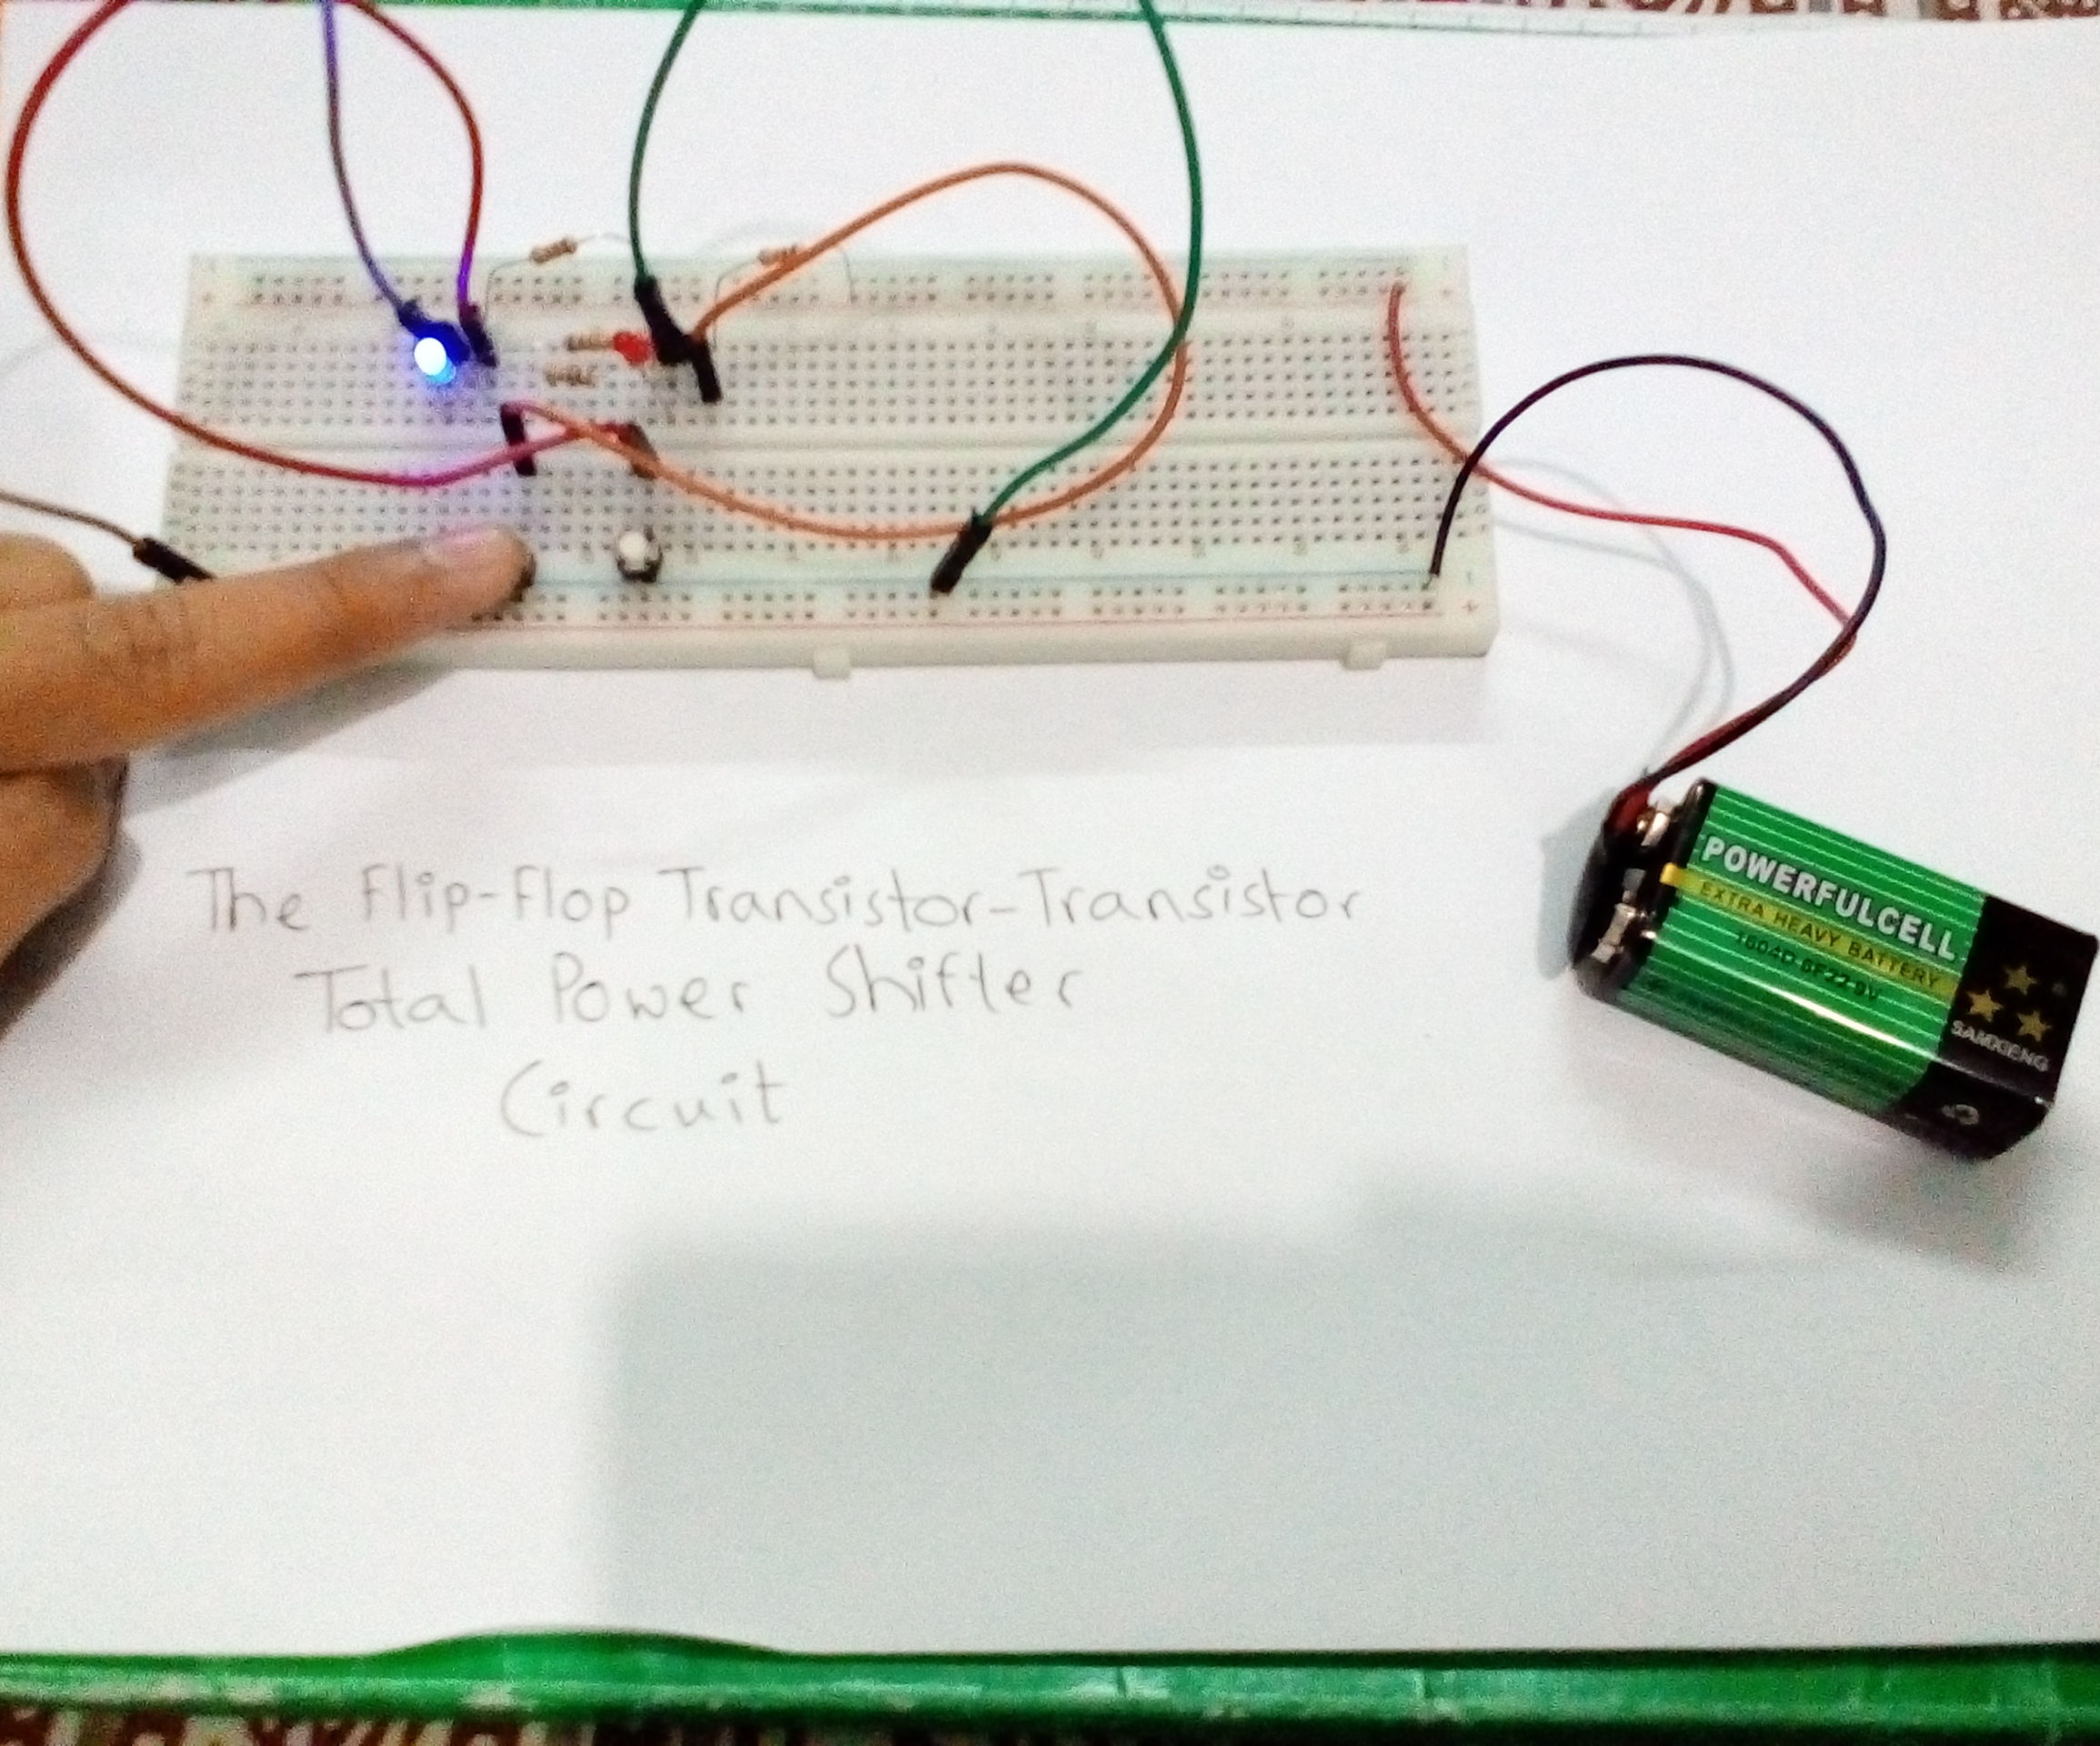 The Flip-Flop Transistor-Transistor
Total Power Shifter
Circuit
POWERFULCELL
EXTRA HEAVY BATTERY
1604D 6F22 9V